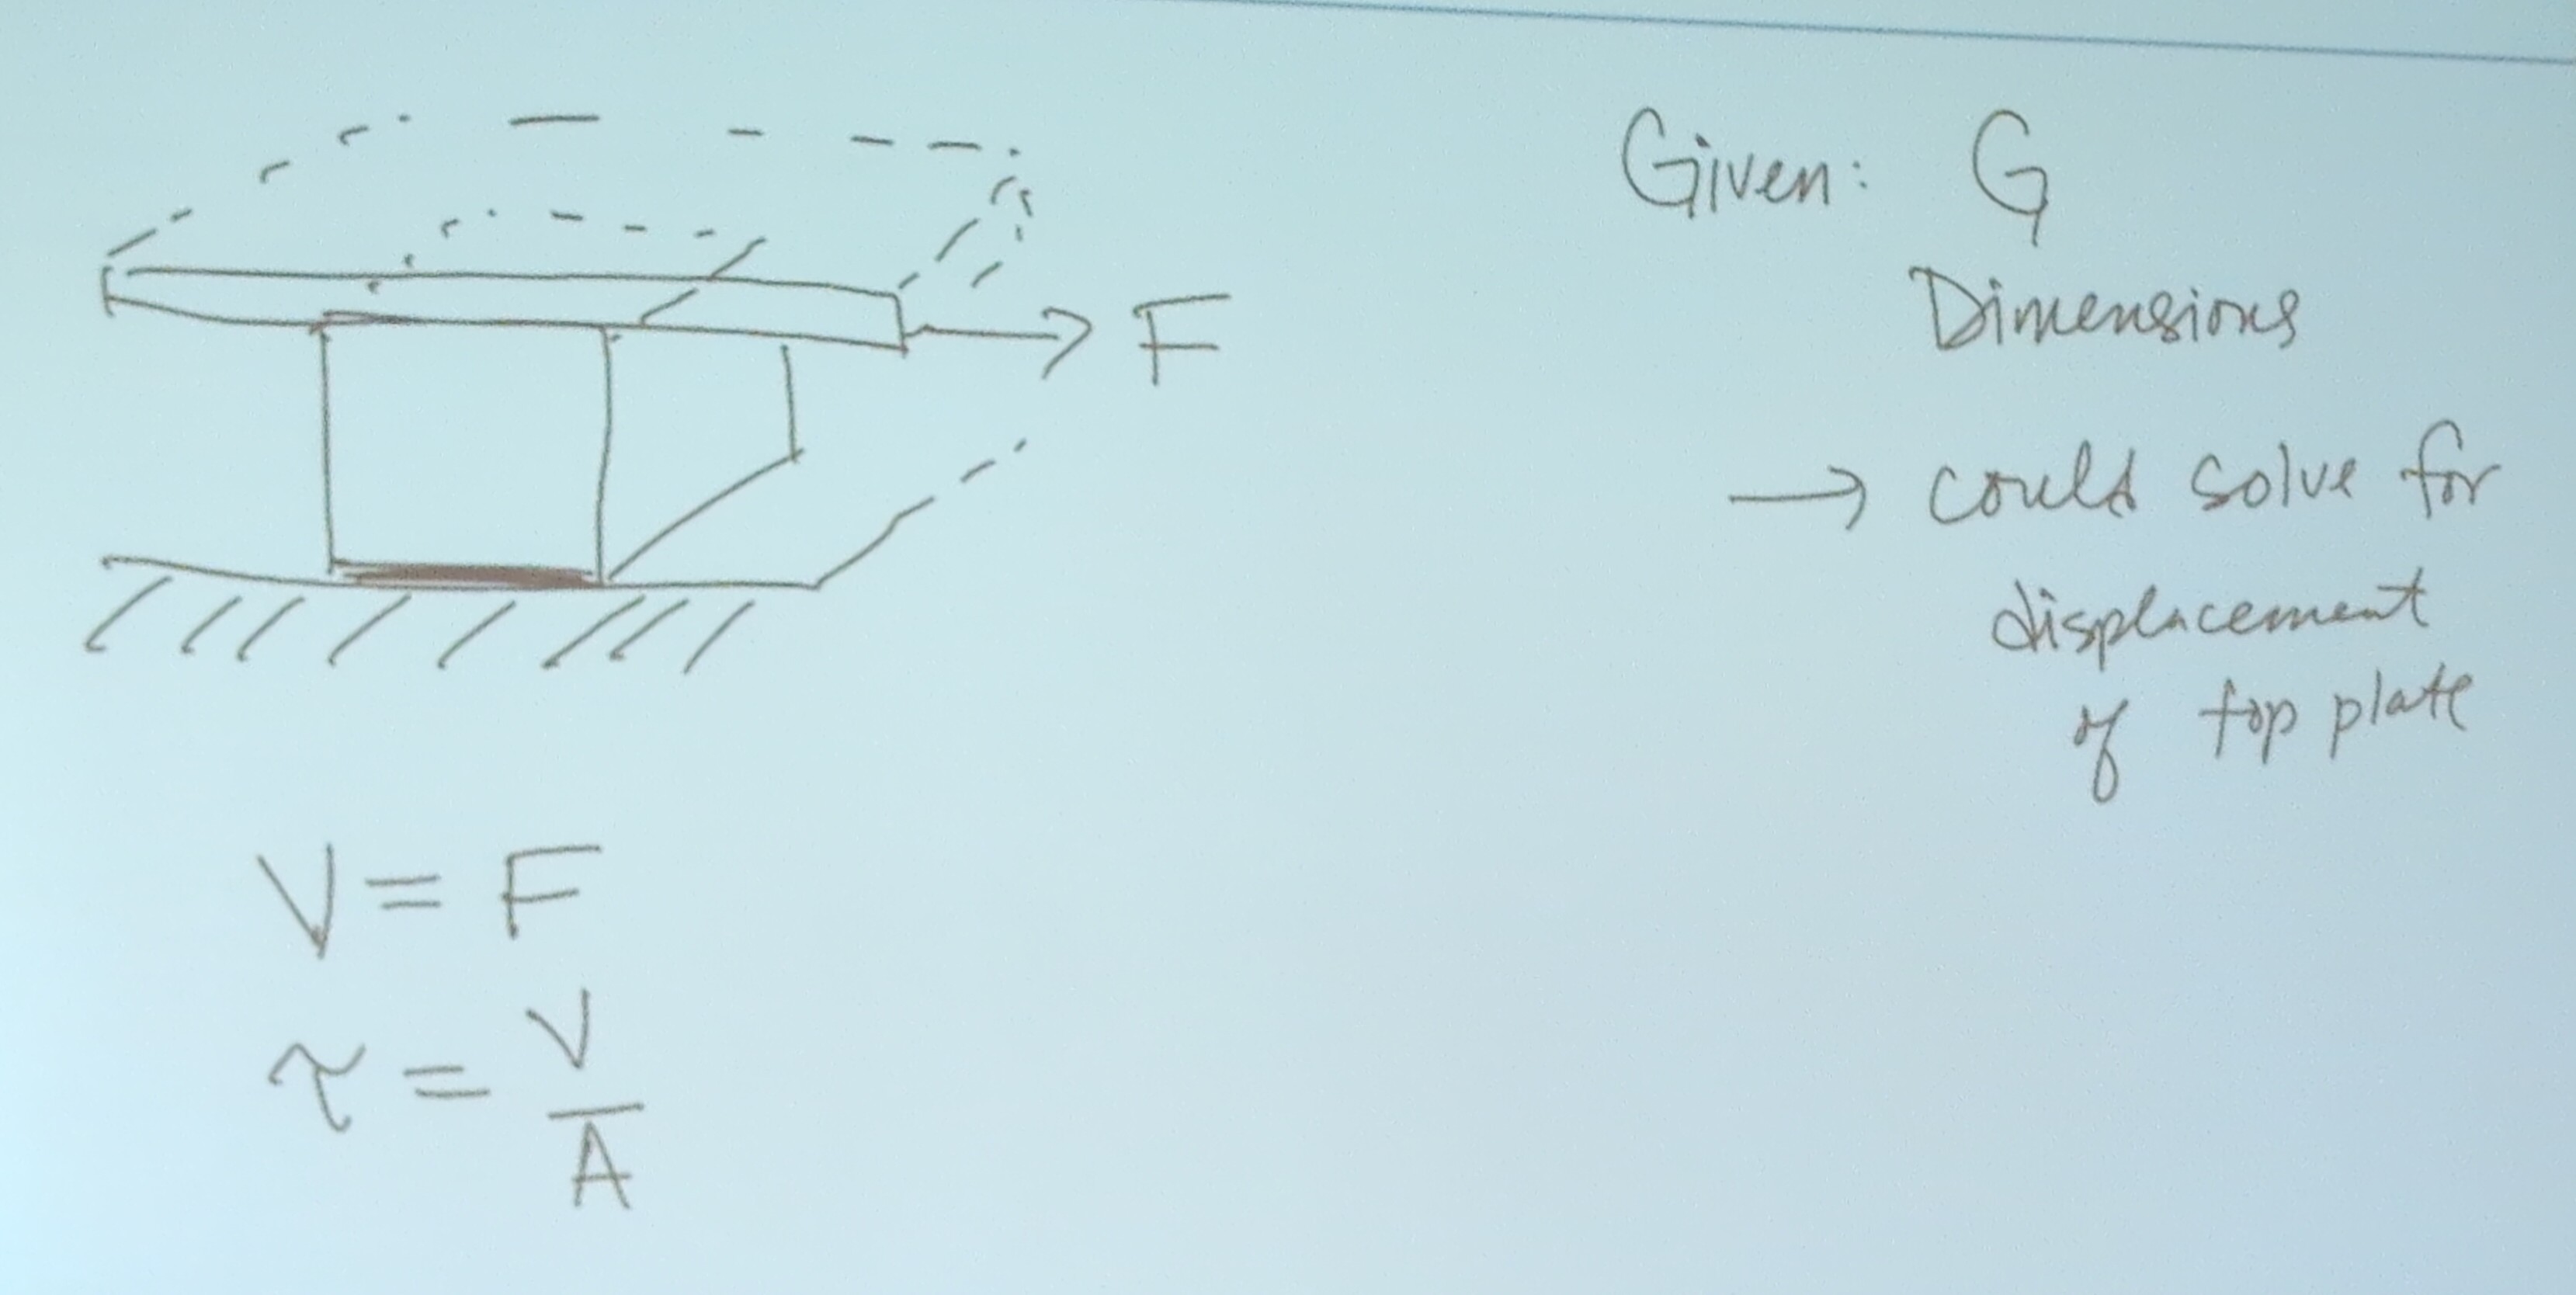 F
Given: G
Dimensions
→ could solve for
displacement
of top plate
V = F
τ = V/A